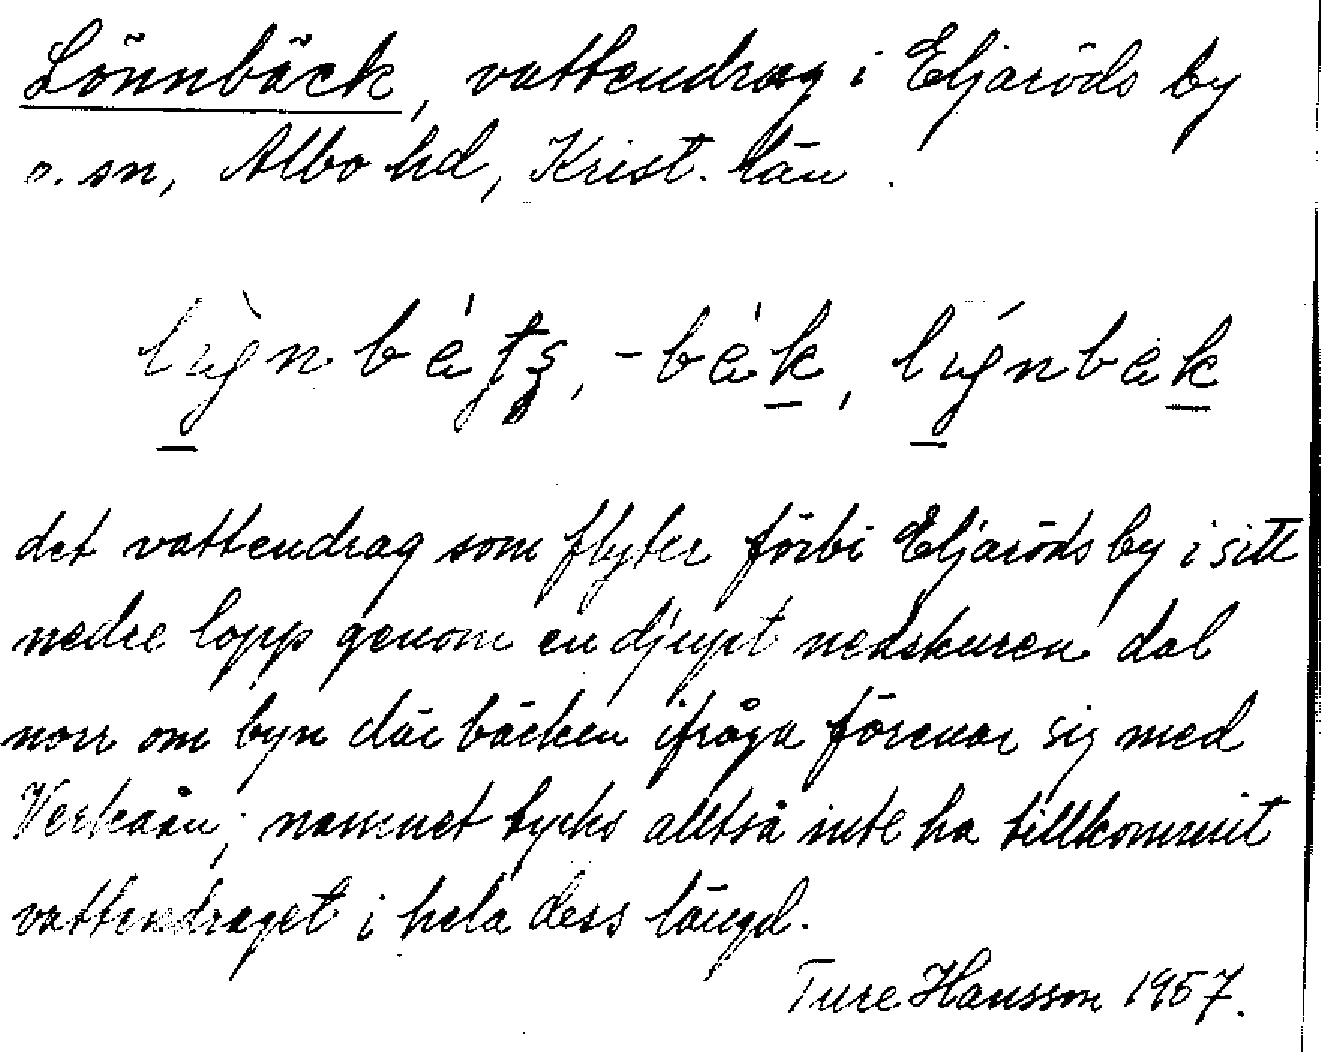 Lönnbäck, vattendrag i Eljaröds by
o. sn, Albo hd, Krist. län.
det vattendrag som flyter förbi Eljaröds by i sitt
nedre lopp genom en djupt nedskuren dal
norr om byn där bäcken ifråga förenar sig med
Verkaån; namnet tycks alltså inte ha tillkommit
vattendraget i hela dess längd.
Ture Hansson 1957.